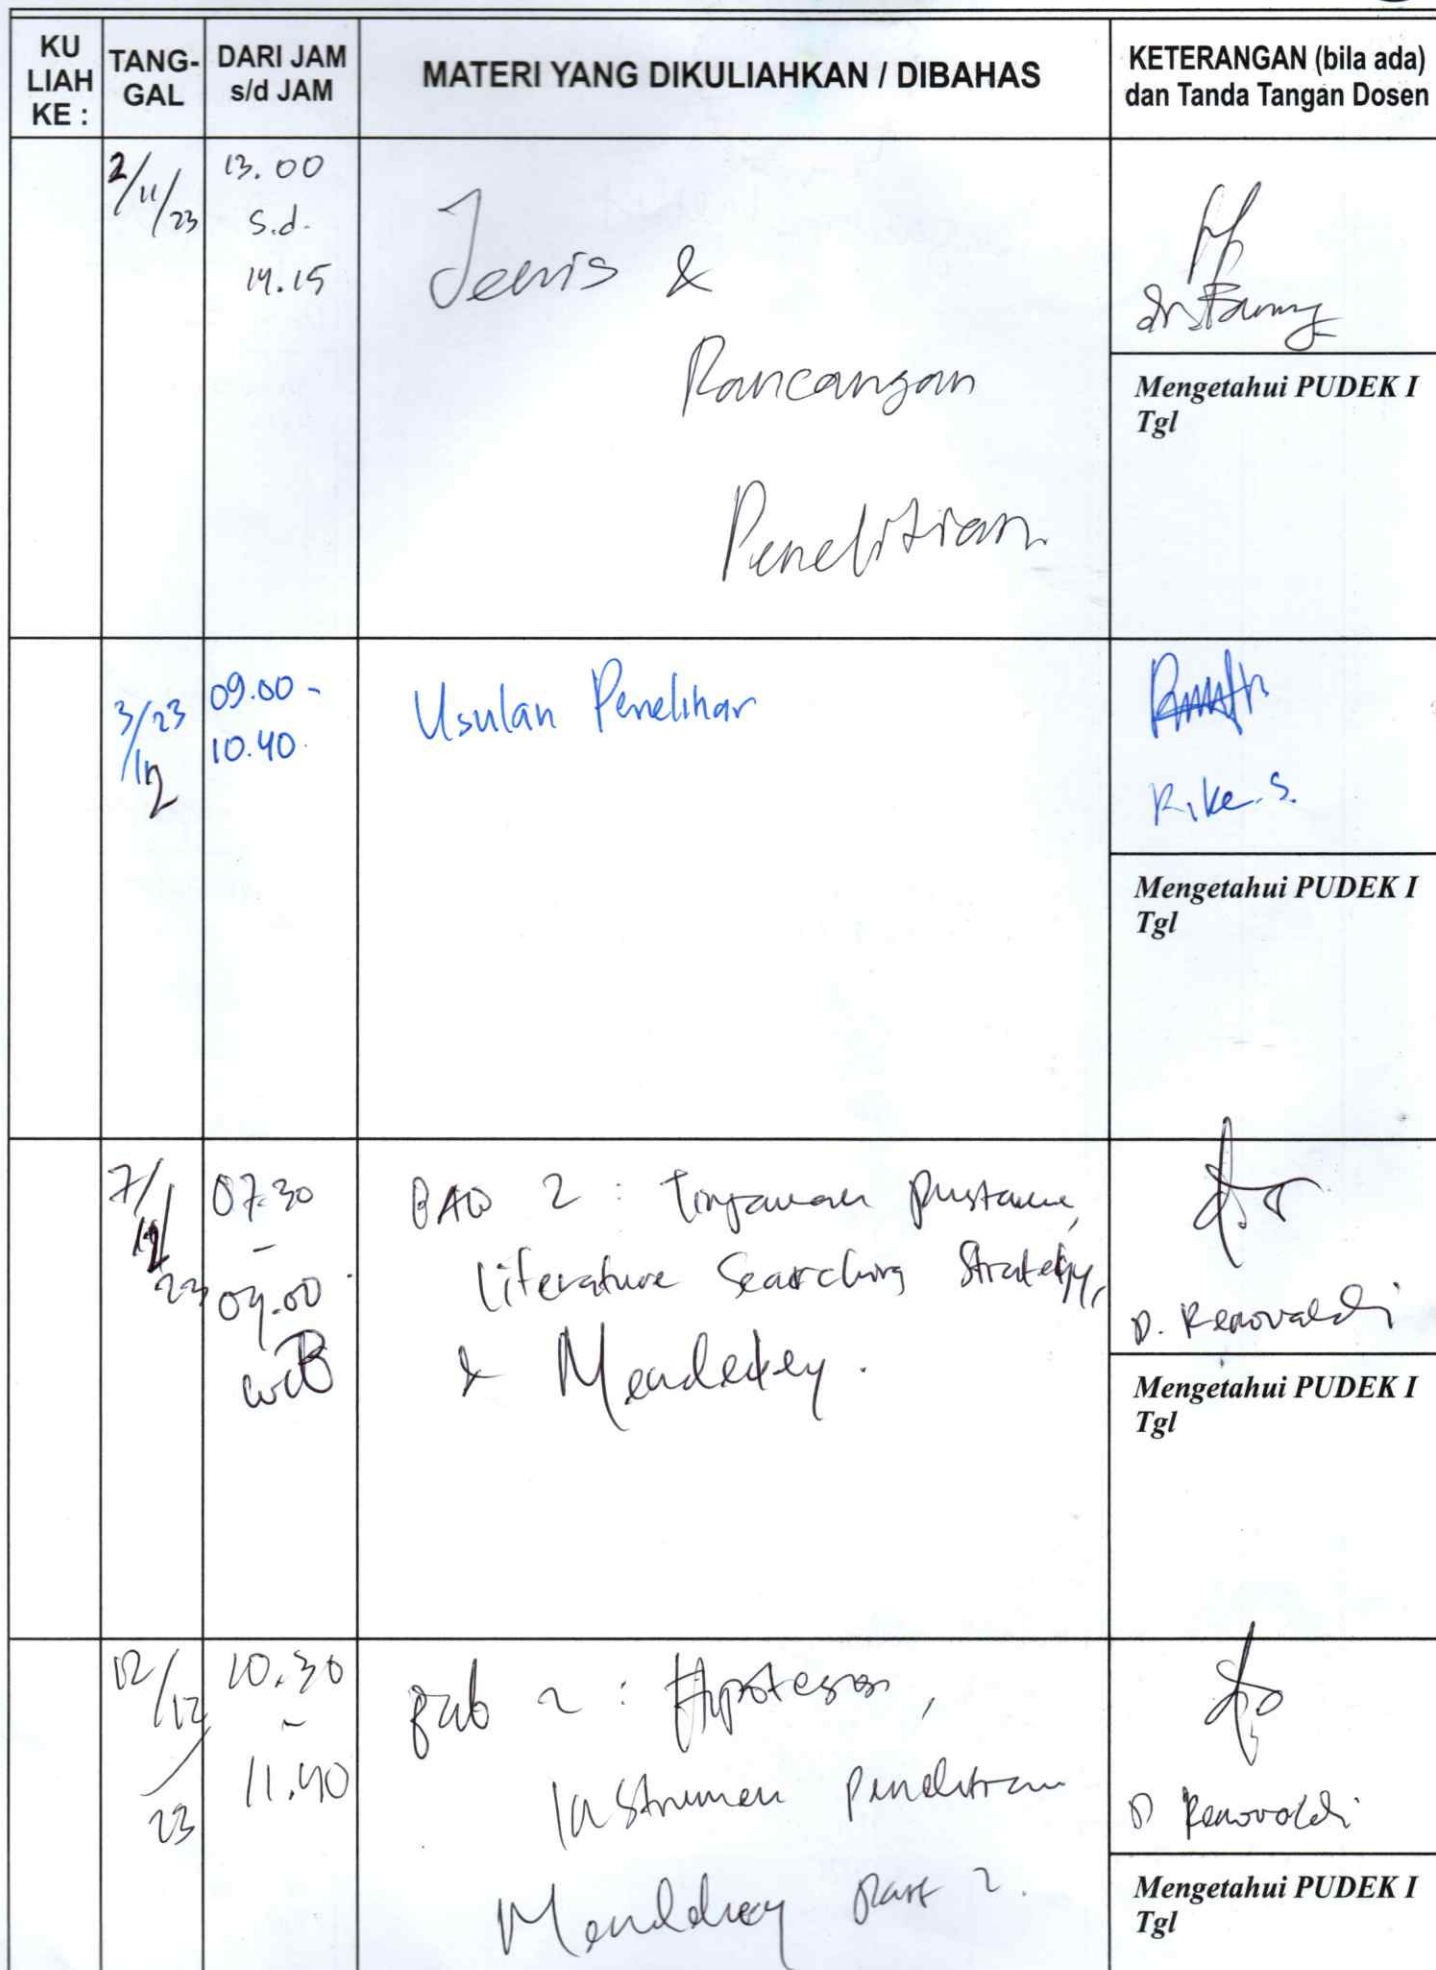 KU
LIAH
KE :
TANG-
GAL
DARI JAM
s/d JAM
MATERI YANG DIKULIAHKAN / DIBAHAS
KETERANGAN (bila ada)
dan Tanda Tangan Dosen
2/11/23
13.00
s.d.
14.15
Jenis &
Rancangan
Penelitian
Mengetahui PUDEK I
Tgl
09.00 -
10.40
Usulan Penelitian
Rike. S.
Mengetahui PUDEK I
Tgl
07.30
-
09.00
WIB
BAB 2 : Tinjauan Pustaka,
Literature Searching Strategy,
& Mendeley.
D. Renovaldi
Mengetahui PUDEK I
Tgl
12/12
/23
10.30
-
11.40
Bab 2 : Hipotesis,
Instrumen Penelitian
Mendeley Part 2.
D Renovaldi
Mengetahui PUDEK I
Tgl